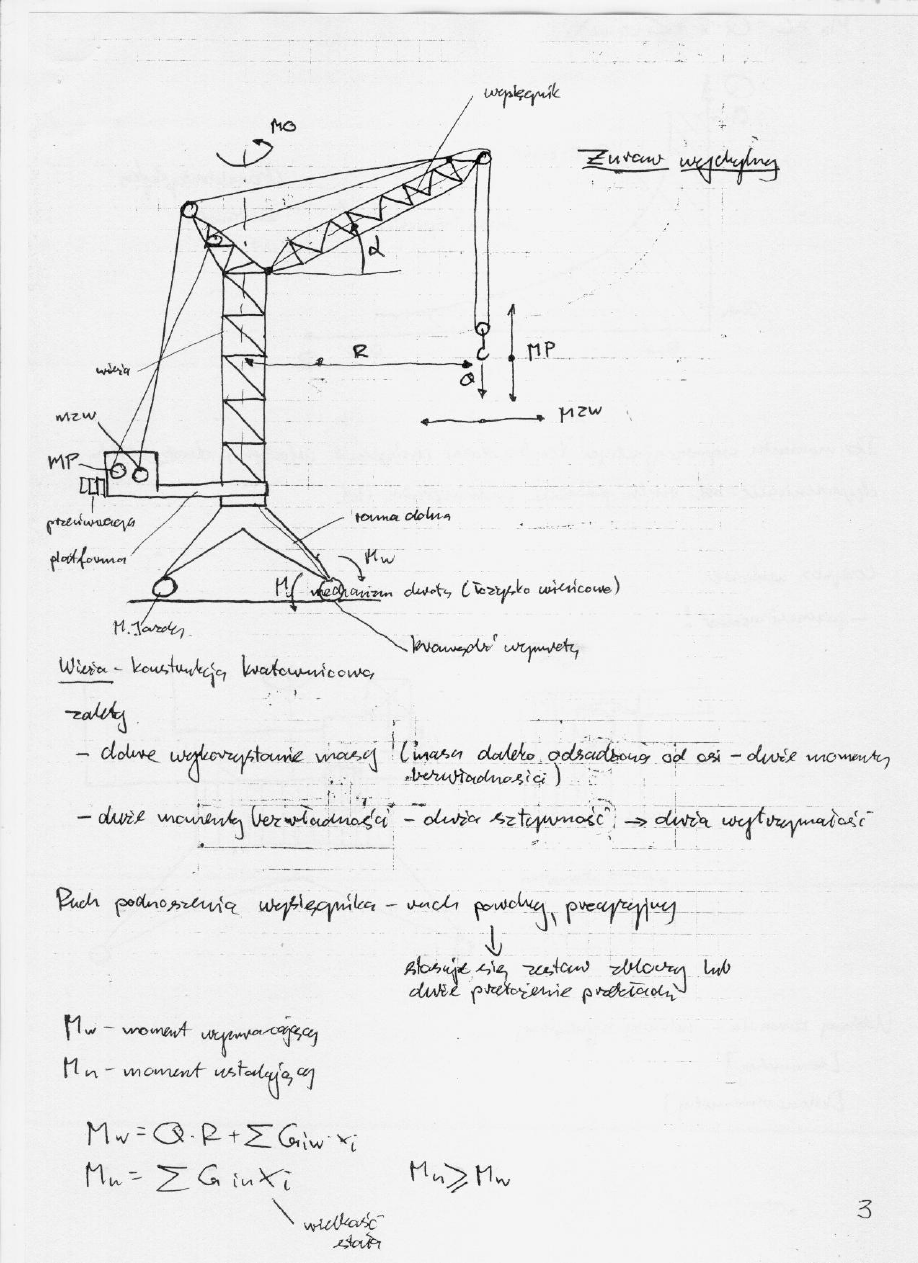 wysięgnik
MO
Żuraw wychylny
α
R
MP
Q
wieża
MZW
MZW
MP
przeciwwaga
rama dolna
platforma
Mw
M
mechanizm obrotu (łożysko wieńcowe)
M. Jazdy
krawędź wywrotu
Wieża - konstrukcja kratownicowa
zalety
- dobre wykorzystanie masy (masa daleko odsadzona od osi - duże momenty
bezwładności)
- duże momenty bezwładności - duża sztywność → duża wytrzymałość
Ruch podnoszenia wysięgnika - ruch powolny, precyzyjny
↓
stosuje się zestaw zblocz lub
duże przełożenie przekładni
Mw - moment wywracający
Mu - moment ustalający
Mw = Q·R + Σ Giw·xi
Mu = Σ Giuxi
Mu ⩾ Mw
wielkość
stała
3